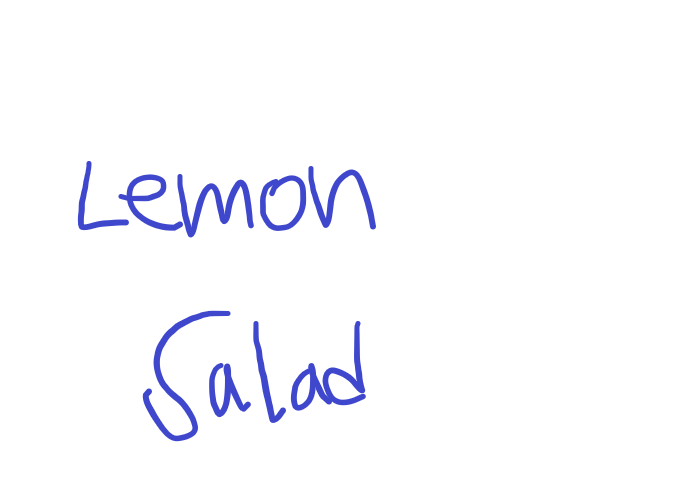 Lemon
Salad